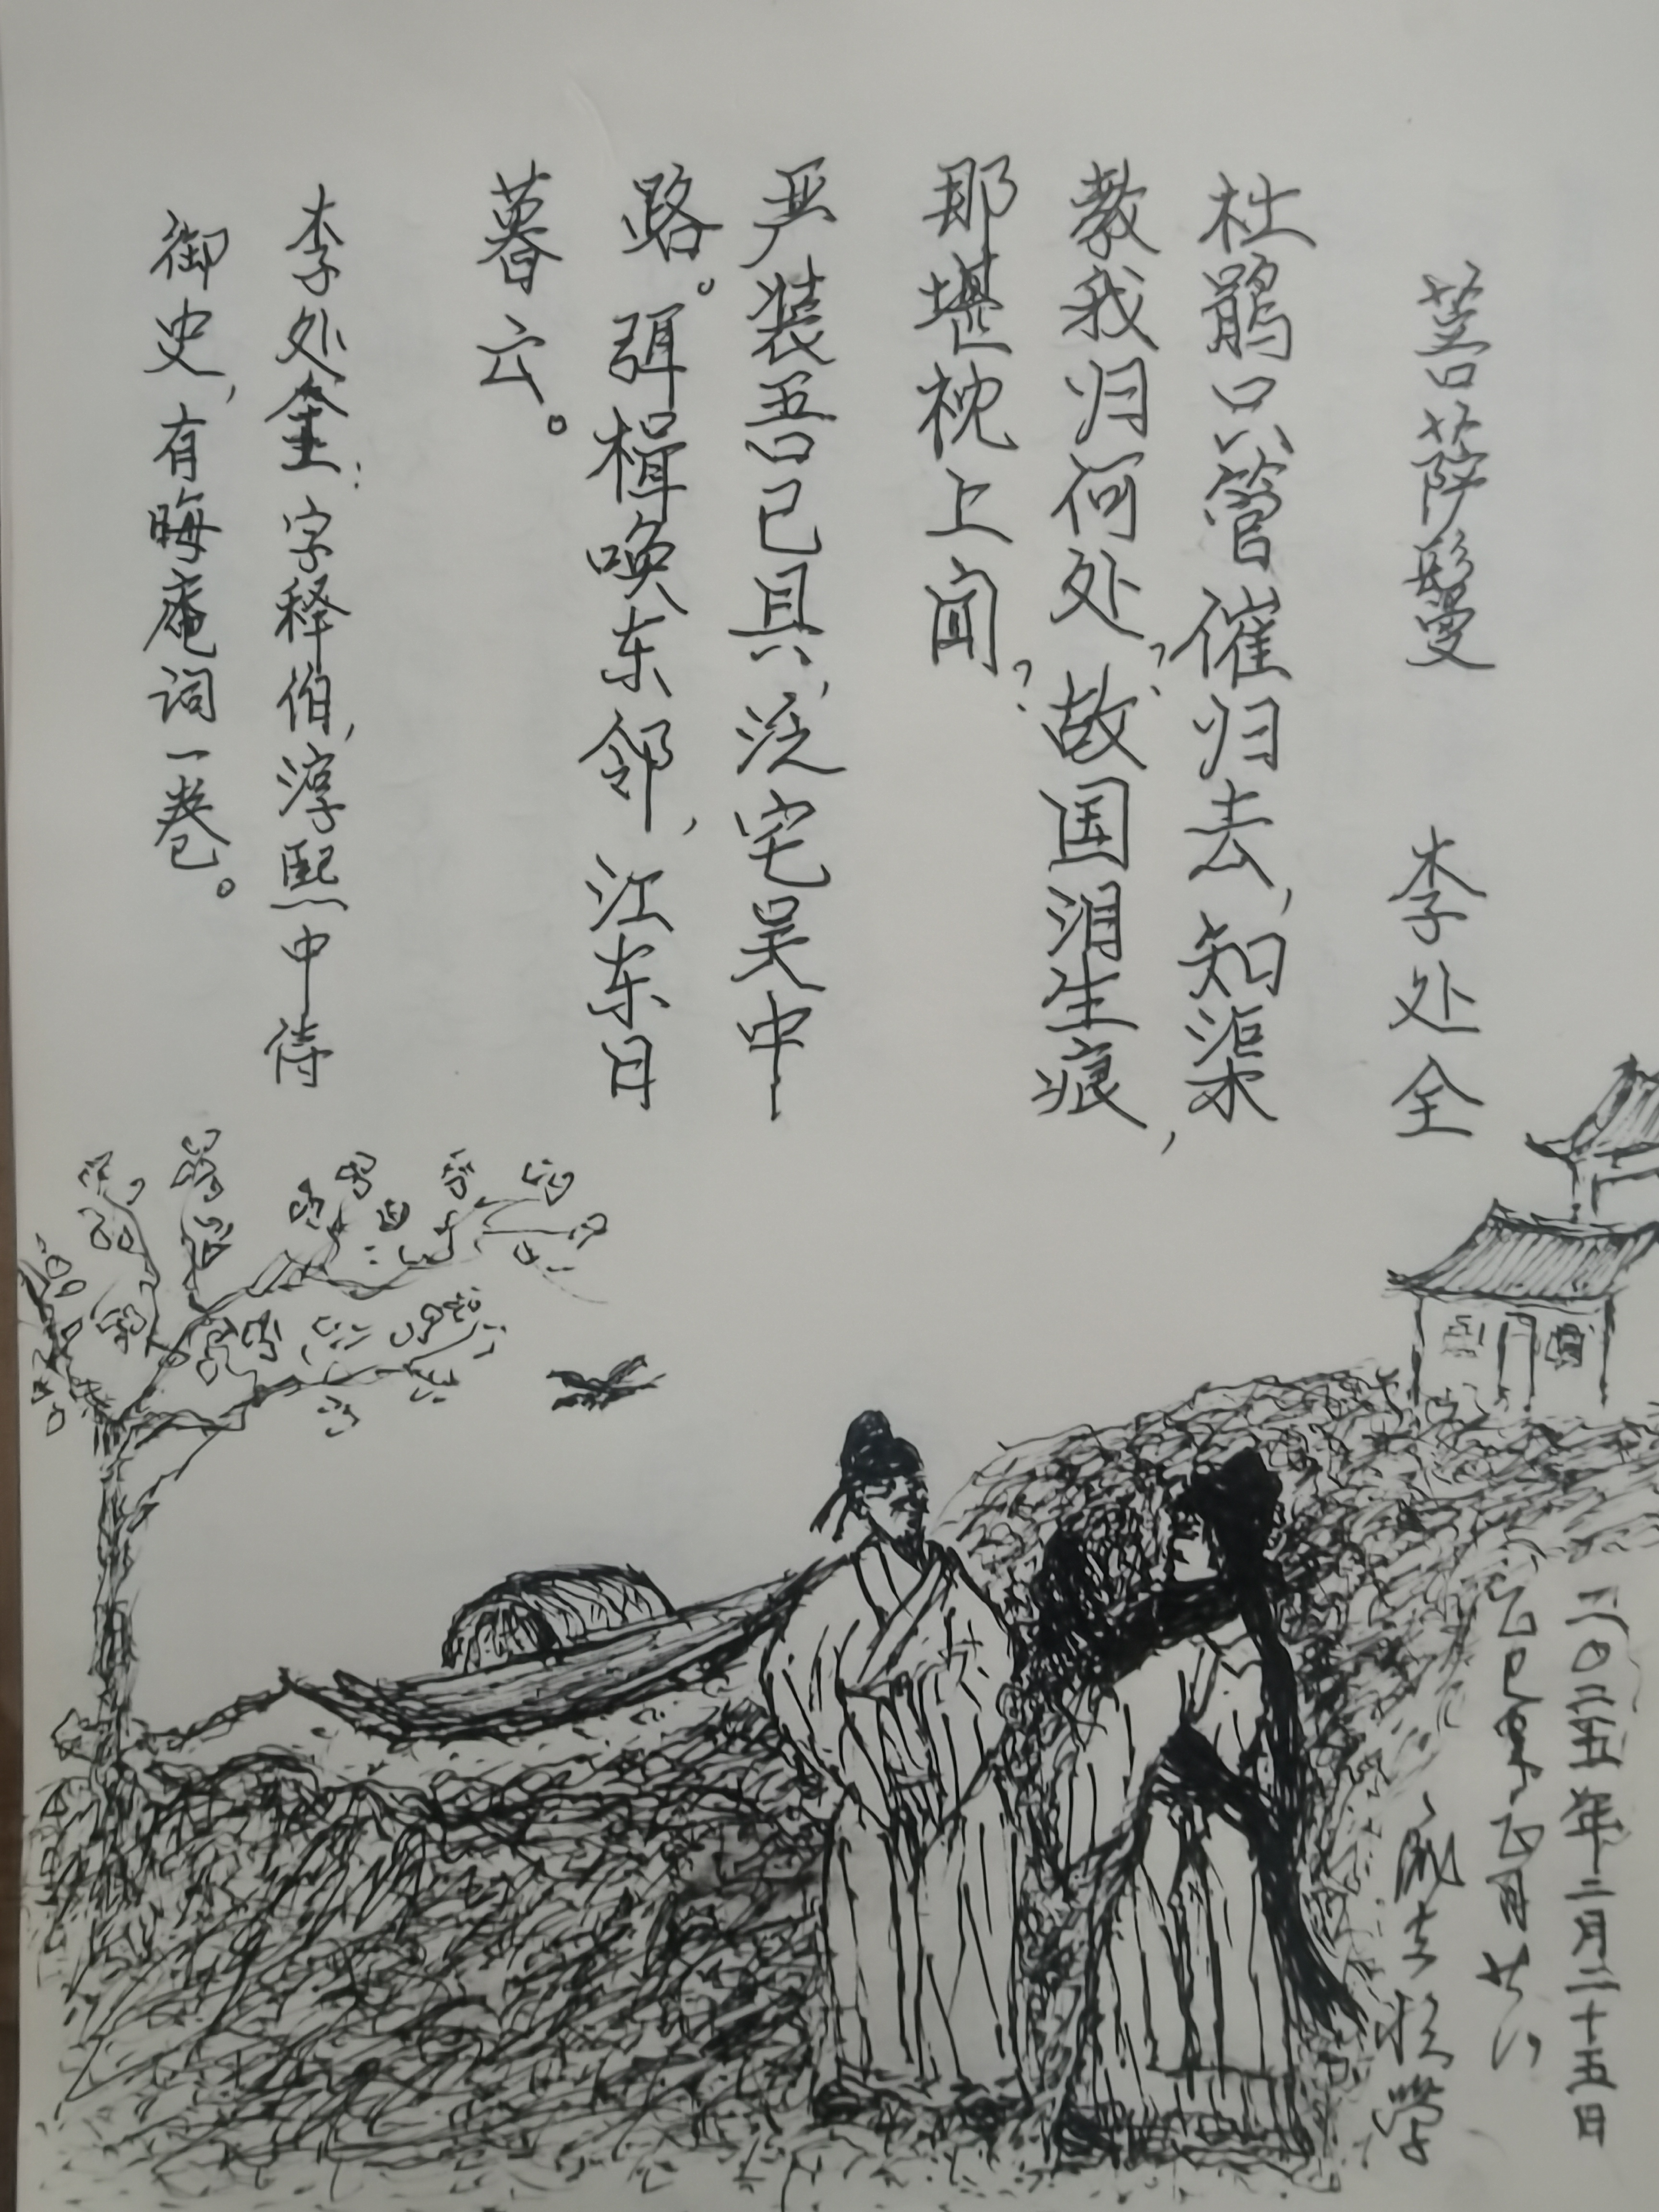 菩萨鬘 李处全
杜鹃只管催归去,知渠
教我归何处?故国泪生痕,
那堪枕上闻?
严装吾已具,泛宅吴中
路。弭楫唤东邻,江东日
暮云。
李处全:字释伯,淳熙中侍
御史,有晦庵词一卷。
二〇二五年二月二十五日
乙巳